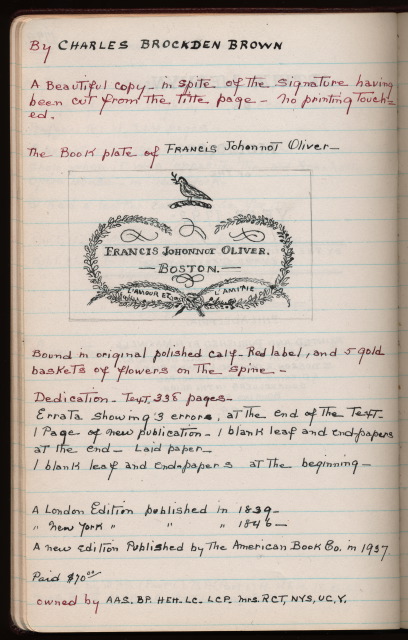 By CHARLES BROCKDEN BROWN
A Beautiful copy - in spite of the signature having
been cut from the title page - no printing Touch=
ed.
The Book plate of FRANCIS Johonnot Oliver -
FRANCIS JOHONNOT OLIVER.
BOSTON.
L'AMOUR ET L'AMITIE
Bound in original polished calf - Red label, and 5 gold
baskets of flowers on the spine -
Dedication - Text, 338 pages -
Errata showing 3 errors, at the end of the Text -
1 Page of new publication - 1 blank leaf and end-papers
at the end - Laid paper -
1 blank leaf and end-papers at the beginning -
A London Edition published in 1839 -
" New York " " " 1846 -
A new edition Published by The American Book Co. in 1937
Paid $70.00
owned by AAS. BP. HEH. LC. LCP. Mrs. RCT, NYS, UC, Y.